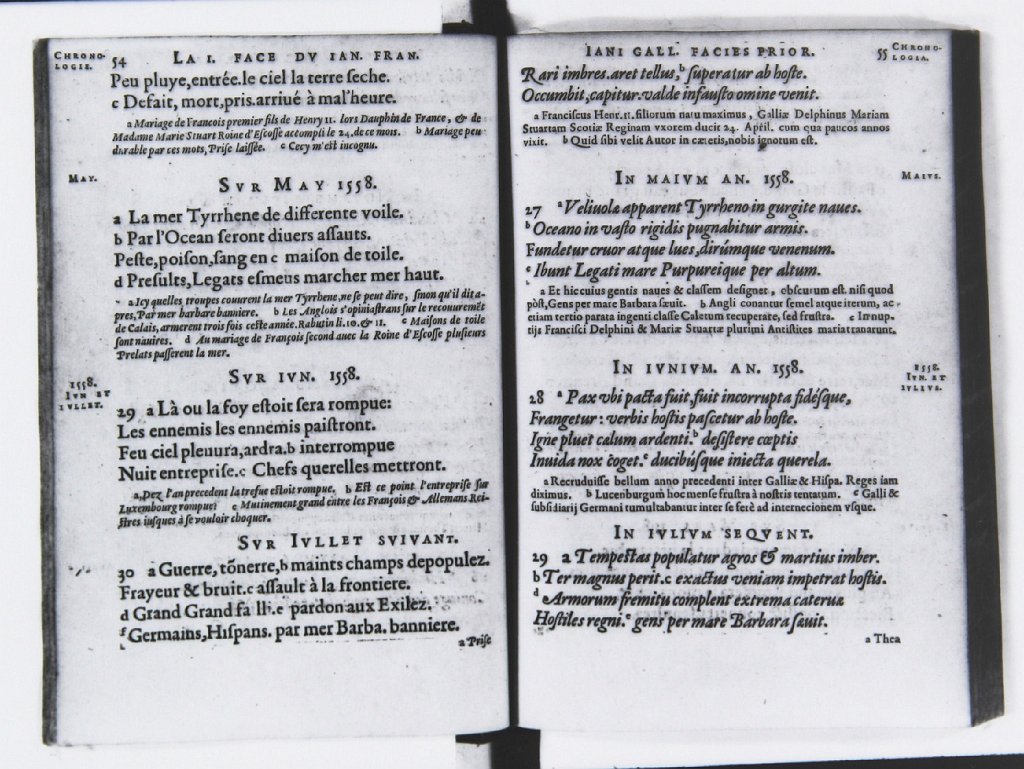 CHRONO-
LOGIE.
54 LA I. FACE DV IAN. FRAN.
Peu pluye,entrée.le ciel la terre seche.
c Defait, mort,pris.arriué à mal'heure.
a Mariage de Francois premier fils de Henry II. lors Dauphin de France, & de
Madame Marie Stuart Roine d'Escosse accompli le 24.de ce mois. b Mariage peu
durable par ces mots, Prise laissée. c Cecy m'est incognu.
MAY.
SVR MAY 1558.
a La mer Tyrrhene de differente voile.
b Par l'Ocean seront diuers assauts.
Peste,poison,sang en c maison de toile.
d Presults,Legats esmeus marcher mer haut.
a Icy quelles troupes couurent la mer Tyrrhene,ne se peut dire, sinon qu'il dit a-
pres,Par mer barbare banniere. b Les Anglois s'opiniastrans sur le recouuremẽt
de Calais,armerent trois fois ceste année.Rabutin li.10.& 11. c Maisons de toile
sont nauires. d Au mariage de François second auec la Roine d'Escosse plusieurs
Prelats passerent la mer.
1558.
IVN ET
IVLLET.
SVR IVN. 1558.
29 a Là ou la foy estoit sera rompue:
Les ennemis les ennemis paistront.
Feu ciel pleuura,ardra.b interrompue
Nuit entreprise.c Chefs querelles mettront.
a Dez l'an precedent la trefue estoit rompue. b Est ce point l'entreprise sur
Luxembourg rompue? c Mutinement grand entre les François & Allemans Rei-
stres iusques à se vouloir choquer.
SVR IVLLET SVIVANT.
30 a Guerre, tõnerre,b maints champs depopulez.
Frayeur & bruit.c assault à la frontiere.
d Grand Grand failli.e pardon aux Exilez.
f Germains,Hispans. par mer Barba. banniere.
a Prise
IANI GALL. FACIES PRIOR. 55
CHRONO-
LOGIA.
Rari imbres.aret tellus, b superatur ab hoste.
Occumbit,capitur.valde infausto omine venit.
a Franciscus Henr.II.filiorum natu maximus, Galliæ Delphinus Mariam
Stuartam Scotiæ Reginam vxorem ducit 24. April. cum qua paucos annos
vixit. b Quid sibi velit Autor in cæteris,nobis ignotum est.
IN MAIVM AN. 1558.
MAIVS.
27 a Veliuolæ apparent Tyrrheno in gurgite naues.
b Oceano in vasto rigidis pugnabitur armis.
Fundetur cruor atque lues,dirúmque venenum.
c Ibunt Legati mare Purpureique per altum.
a Et hic cuius gentis naues & classem designet, obscurum est. nisi quod
pòst,Gens per mare Barbara sæuit. b Angli conantur semel atque iterum, ac
etiam tertio parata ingenti classe Caletum recuperare, sed frustra. c In nup-
tijs Francisci Delphini & Mariæ Stuartæ plurimi Antistites maria tranarunt.
IN IVNIVM. AN. 1558.
1558.
IVN. ET
IVLIVS.
28 a Pax vbi pacta fuit,fuit incorrupta fidésque,
Frangetur: verbis hostis pascetur ab hoste.
Igne pluet cælum ardenti. b desistere cœptis
Inuida nox coget. c ducibúsque iniecta querela.
a Recruduisse bellum anno precedenti inter Galliæ & Hispa. Reges iam
diximus. b Lucenburgum hoc mense frustra à nostris tentatum. c Galli &
subsidiarij Germani tumultabantur inter se ferè ad internecionem vsque.
IN IVLIVM SEQVENT.
29 a Tempestas populatur agros & martius imber.
b Ter magnus perit.c exactus veniam impetrat hostis.
d Armorum fremitu complent extrema cateruæ
Hostiles regni. e gens per mare Barbara sæuit.
a Thea